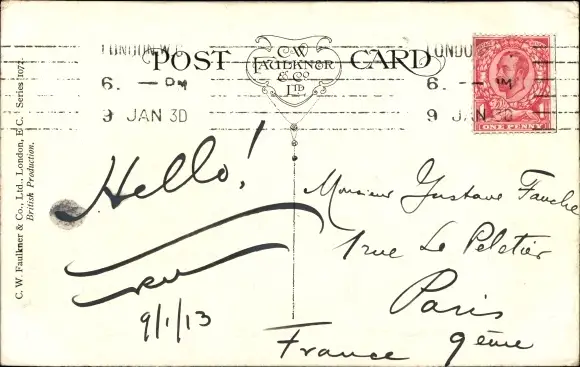 LONDON. W.C.
POST CARD
C.W. FAULKNER & Co LTD
LONDO
6. — PM
9 JAN 30
6. — PM
9 JAN 30
ONE PENNY
C. W. Faulkner & Co., Ltd., London, E.C. Series 1072.
British Production.
Hello!
9/1/13
Monsieur Gustave
1 rue Le Peletier
Paris
9ème
France